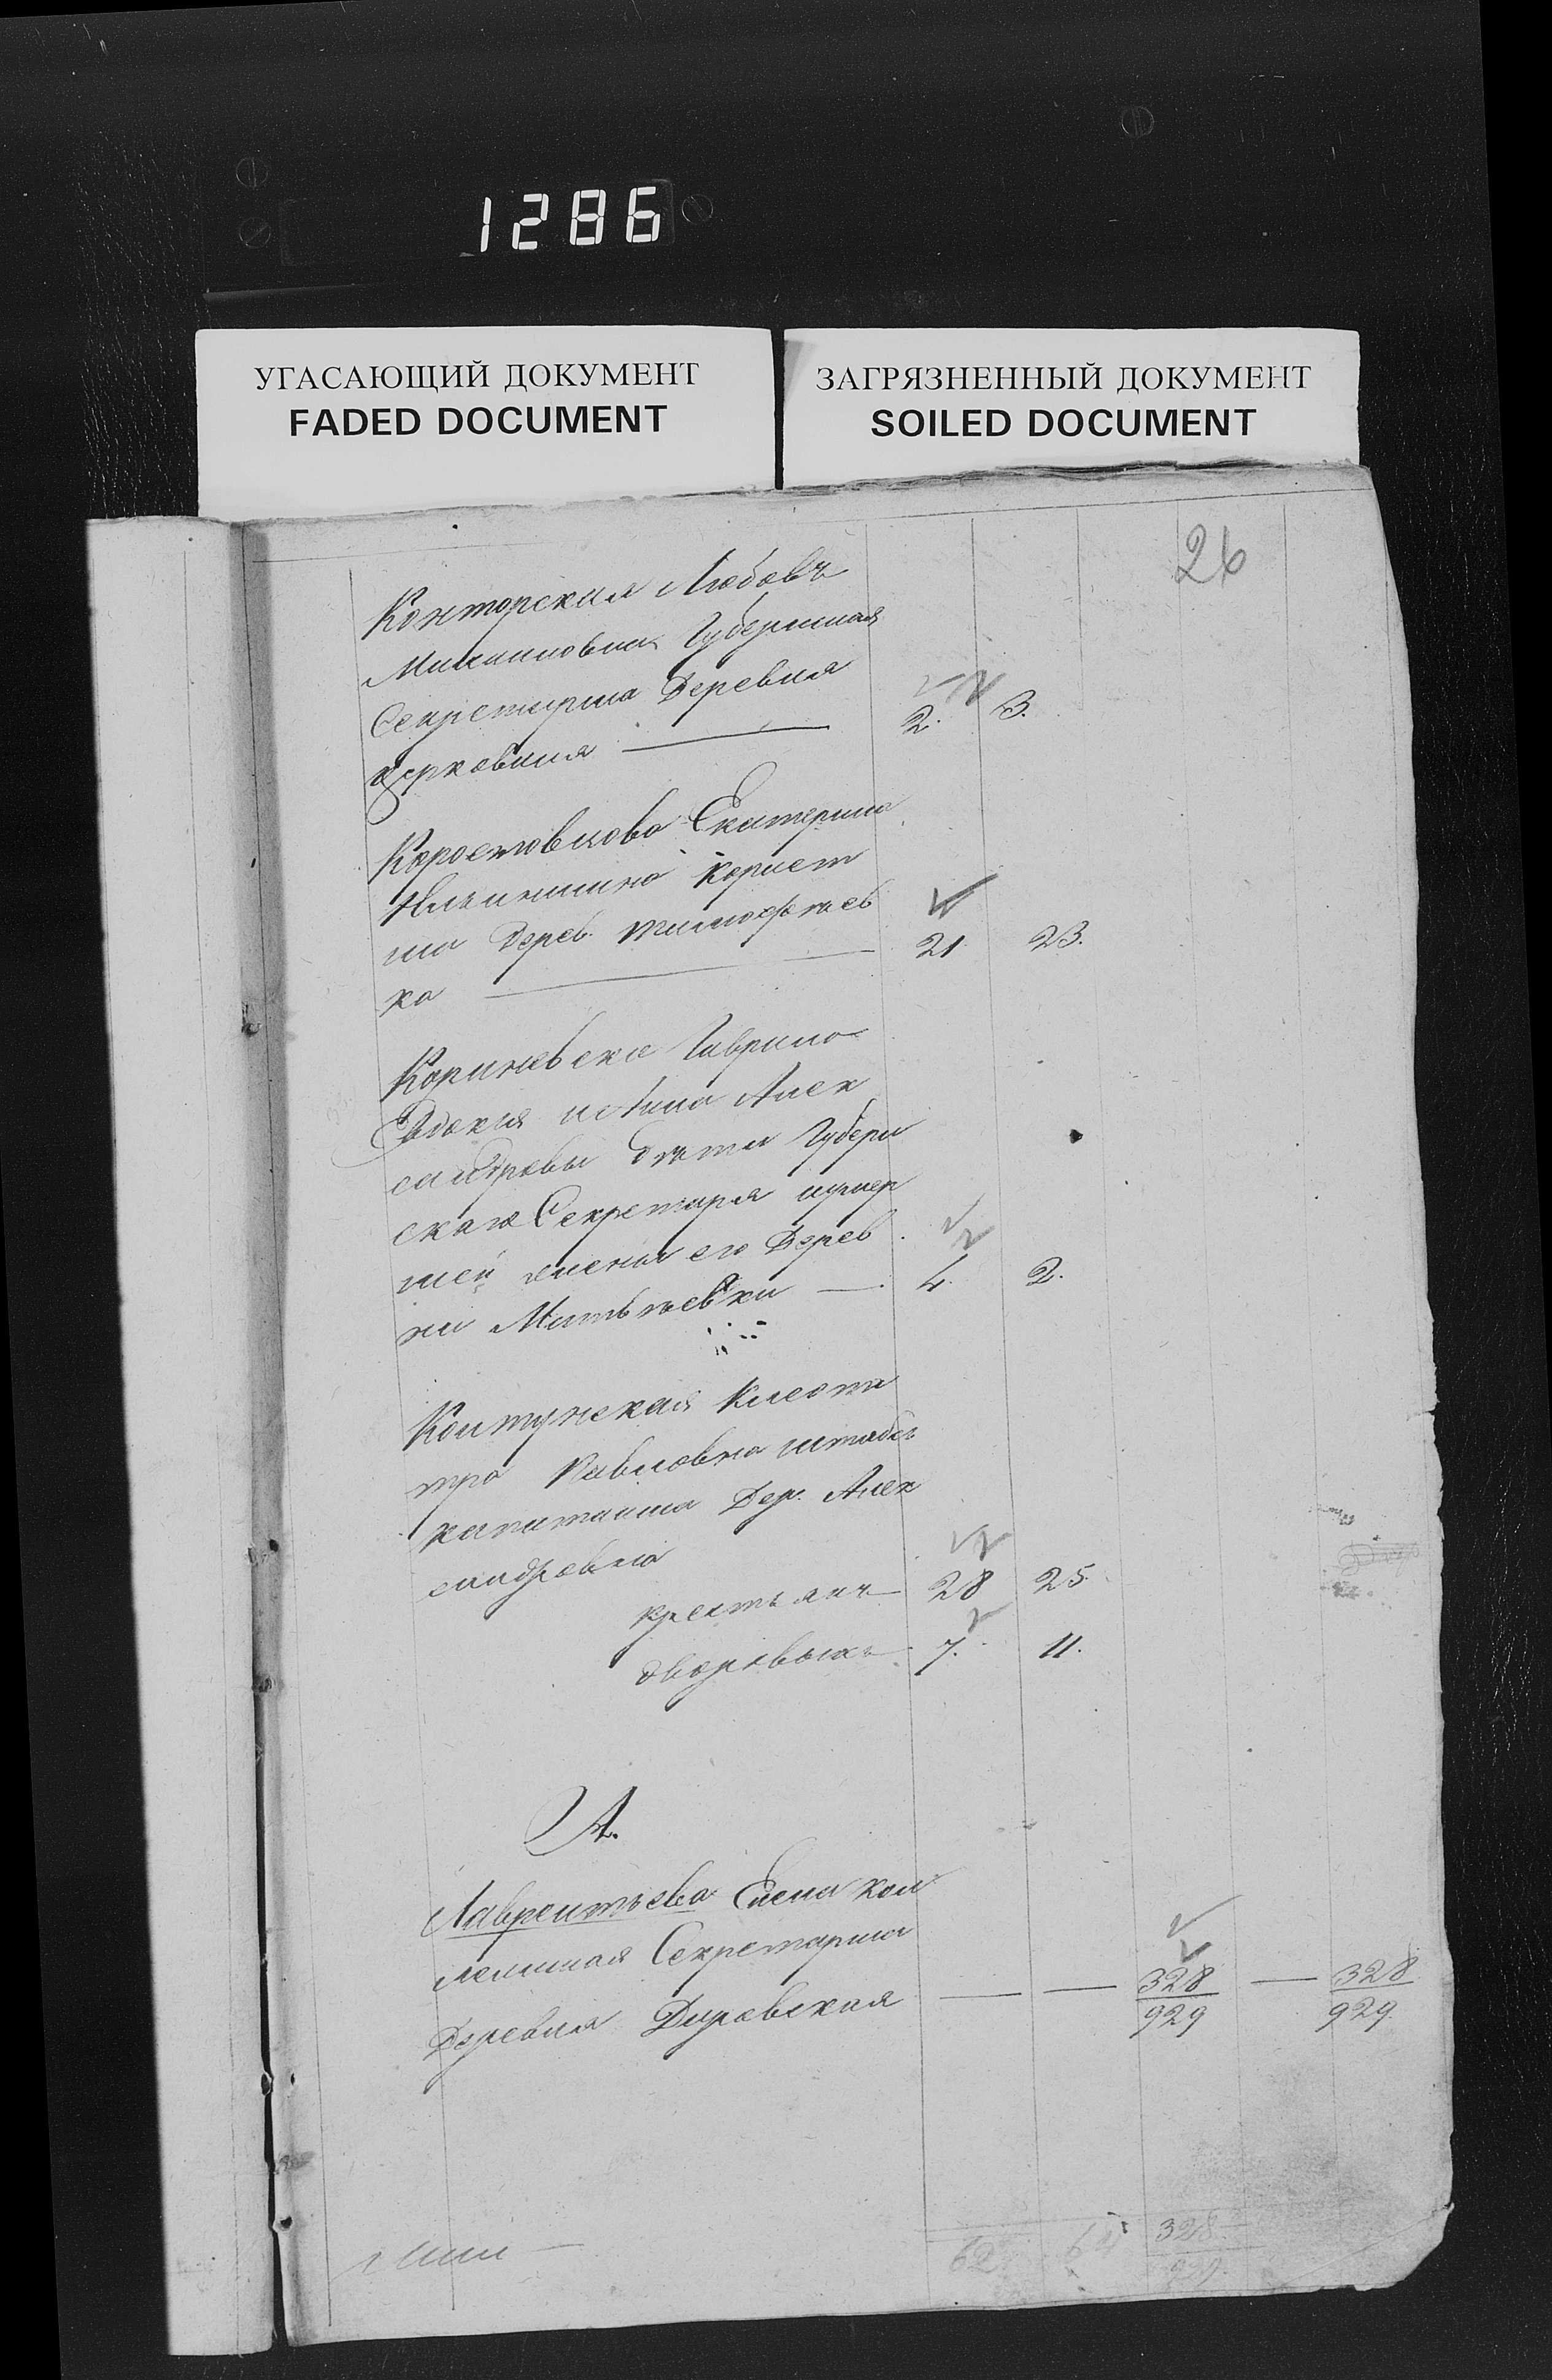 1286
УГАСАЮЩИЙ ДОКУМЕНТ
FADED DOCUMENT
ЗАГРЯЗНЕННЫЙ ДОКУМЕНТ
SOILED DOCUMENT
26
Конторская Любовь
Губернская
Секретарша Деревня
Церковная — 2. 3.
Коростовцова Екатерина
Корнет
ша Дерев. Тимофѣев
ка — 21 23.
Гаврило
Евдокія и Анна Алек
сандровы дѣти Губерн
скаго Секретаря умер
шей жены его Дерев
ни Матвѣевки — 4. 2.
Клеопа
тра Павловна штабсъ
капитанша Дер. Алек
сандровка
крестьянъ — 28 25.
дворовыхъ — 7. 11.
Л.
Лаврентьева Елена кол
лежская Секретарша
Деревня — — 328/929 — 328/929.
62 64 328
929